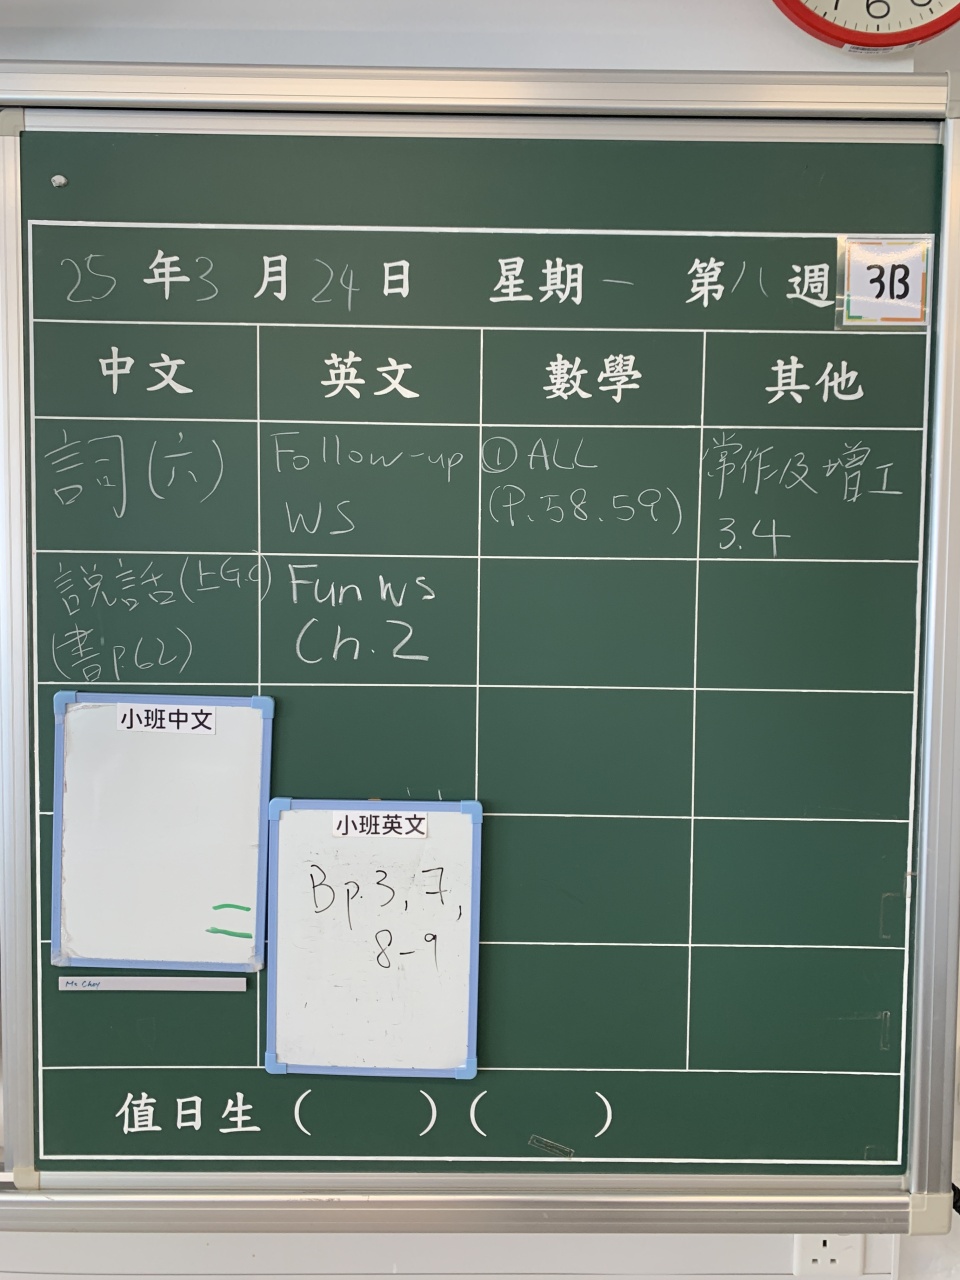 25年3月24日 星期一 第八週 3B
中文 英文 數學 其他
詞(六)
Follow-up
WS
①ALL
(P.58.59)
常作及增工
3.4
説話(上G.C)
(書p.62)
Fun WS
Ch.2
小班中文
小班英文
Bp.3, 7,
8-9
值日生( )( )